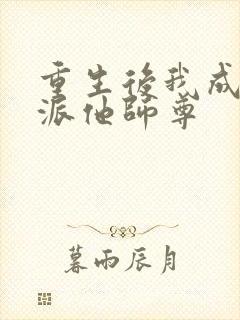 重生後我成
派他師尊
暮雨辰月